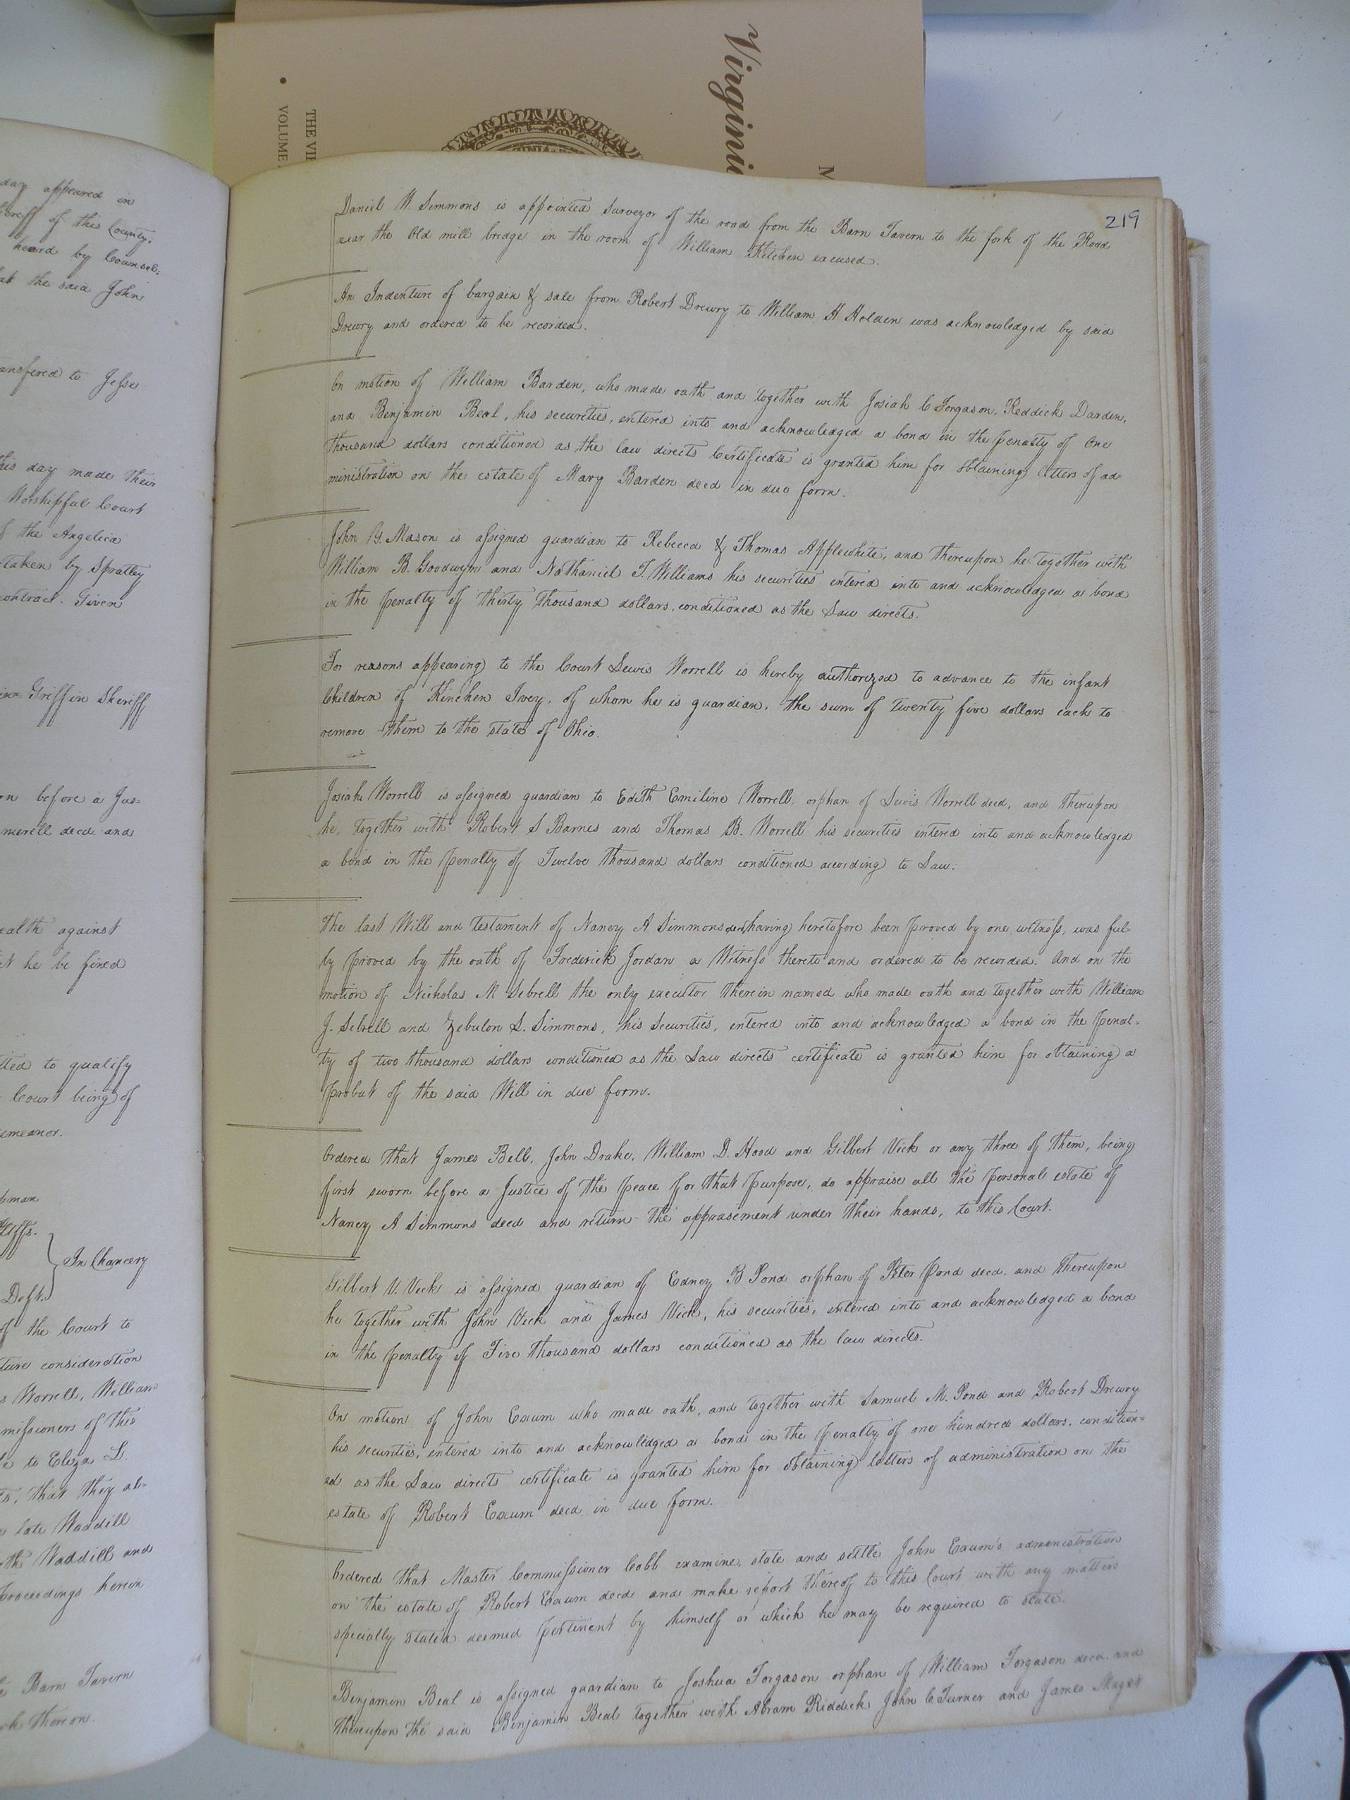 Virgini
THE VI
VOLUME
M
219
day appeared in
Sheriff of this County,
heard by Counsel,
at the said John
ansfered to Jesse
his day made their
Worshipful Court
f the Angelica
taken by Spratley
contract. Given
Griffin Sheriff
on before a Jus-
merell decd and
ealth against
t he be fined
tted to qualify
Court being of
emeanor.
pman
Plffs.
In Chancery
Deft.
of the Court to
ture consideration
s Worrell, William
missioners of this
to Eliza L.
ts, that they al-
late Waddill
th Waddill and
proceedings herein
e Barn Tavern
rk thereon.
Daniel W Simmons is appointed Surveyor of the road from the Barn Tavern to the fork of the Road
near the Old mill bridge in the room of William Kitchen excused.
An Indenture of bargain & sale from Robert Drewry to William H Holden was acknowledged by said
Drewry and ordered to be recorded.
On motion of William Barden, who made oath and together with Josiah C Forgason, Reddick Darden,
and Benjamin Beal, his securities, entered into and acknowledged a bond in the penalty of One
thousand dollars conditioned as the law directs Certificate is granted him for obtaining letters of ad
ministration on the estate of Mary Barden decd in due form.
John Y. Mason is assigned guardian to Rebecca & Thomas Applewhite, and thereupon he together with
William B. Goodwyn and Nathaniel T. Williams his securities entered into and acknowledged a bond
in the penalty of thirty thousand dollars, conditioned as the Law directs.
For reasons appearing to the Court Lewis Worrell is hereby authorized to advance to the infant
Children of Kinchen Ivey, of whom he is guardian, the sum of twenty five dollars each to
remove them to the state of Ohio.
Josiah Worrell is assigned guardian to Edith Emiline Worrell, orphan of Lewis Worrell decd, and thereupon
he, together with Robert S Barnes and Thomas B. Worrell his securities entered into and acknowledged
a bond in the penalty of Twelve thousand dollars conditioned according to Law.
The last Will and testament of Nancy A Simmons decd, having heretofore been proved by one witness, was ful
ly proved by the oath of Frederick Jordan a Witness thereto and ordered to be recorded. And on the
motion of Nicholas M Sebrell the only executor therein named who made oath and together with William
J. Sebrell and Zebulon S. Simmons, his Securities, entered into and acknowledged a bond in the penal-
ty of two thousand dollars conditioned as the Law directs certificate is granted him for obtaining a
probat of the said Will in due form.
Ordered that James Bell, John Drake, William D. Hood and Gilbert Vick or any three of them, being
first sworn before a Justice of the peace for that purpose, do appraise all the personal estate of
Nancy A Simmons decd and return the appraisement under their hands, to this Court.
Gilbert V. Vick is assigned guardian of Edney B Pond orphan of Peter Pond decd. and thereupon
he together with John Vick and James Vick, his securities, entered into and acknowledged a bond
in the penalty of Five thousand dollars conditioned as the law directs.
On motion of John Exum who made oath, and together with Samuel M. Pond and Robert Drewry
his securities, entered into and acknowledged a bond in the penalty of one hundred dollars, condition-
ed as the Law directs certificate is granted him for obtaining letters of administration on the
estate of Robert Exum decd in due form.
Ordered that Master Commissioner Cobb examine, state and settle John Exum's administration
on the estate of Robert Exum decd and make report thereof to this Court with any matters
specially stated deemed pertinent by himself or which he may be required to state.
Benjamin Beal is assigned guardian to Joshua Forgason orphan of William Forgason decd. and
thereupon the said Benjamin Beal together with Abram Riddick John C Turner and James Mayes